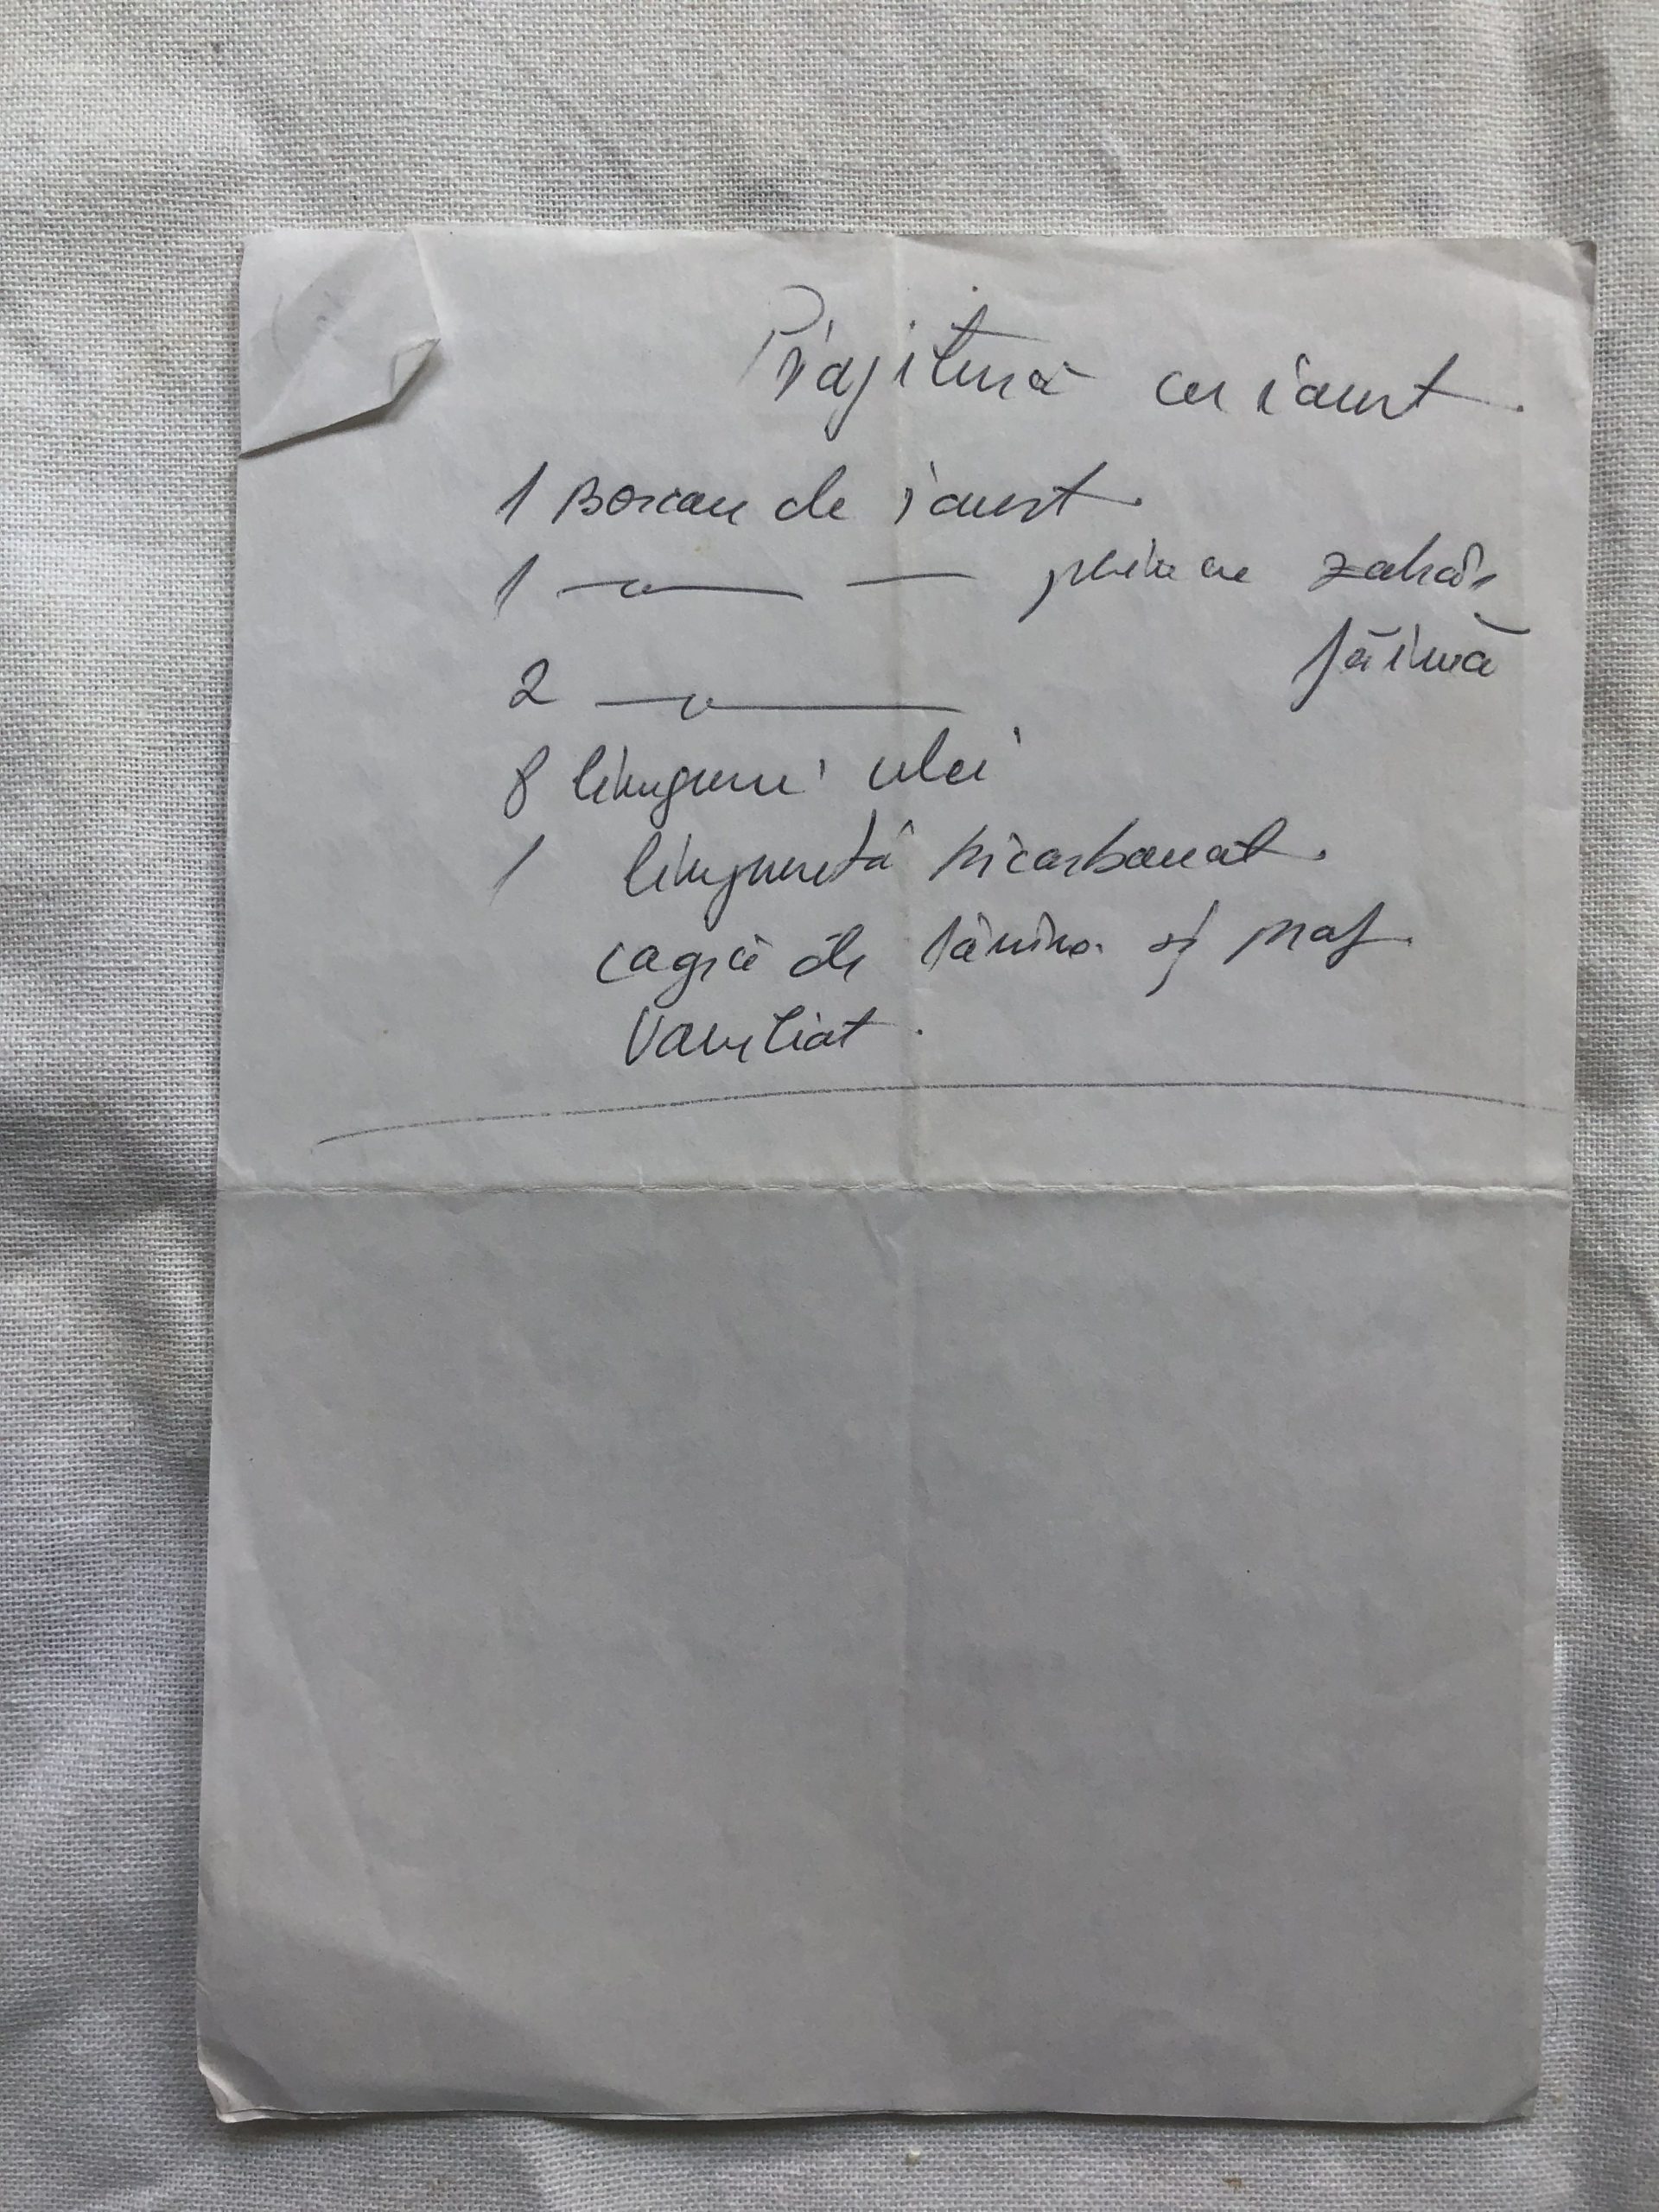 Prăjitură cu iaurt.
1 Borcan de iaurt.
1 —〃— — plin cu zahăr
2 —〃— făină
8 linguri ulei
1 linguriță bicarbonat.
coajă de lămîie și praf
Vaniliat.